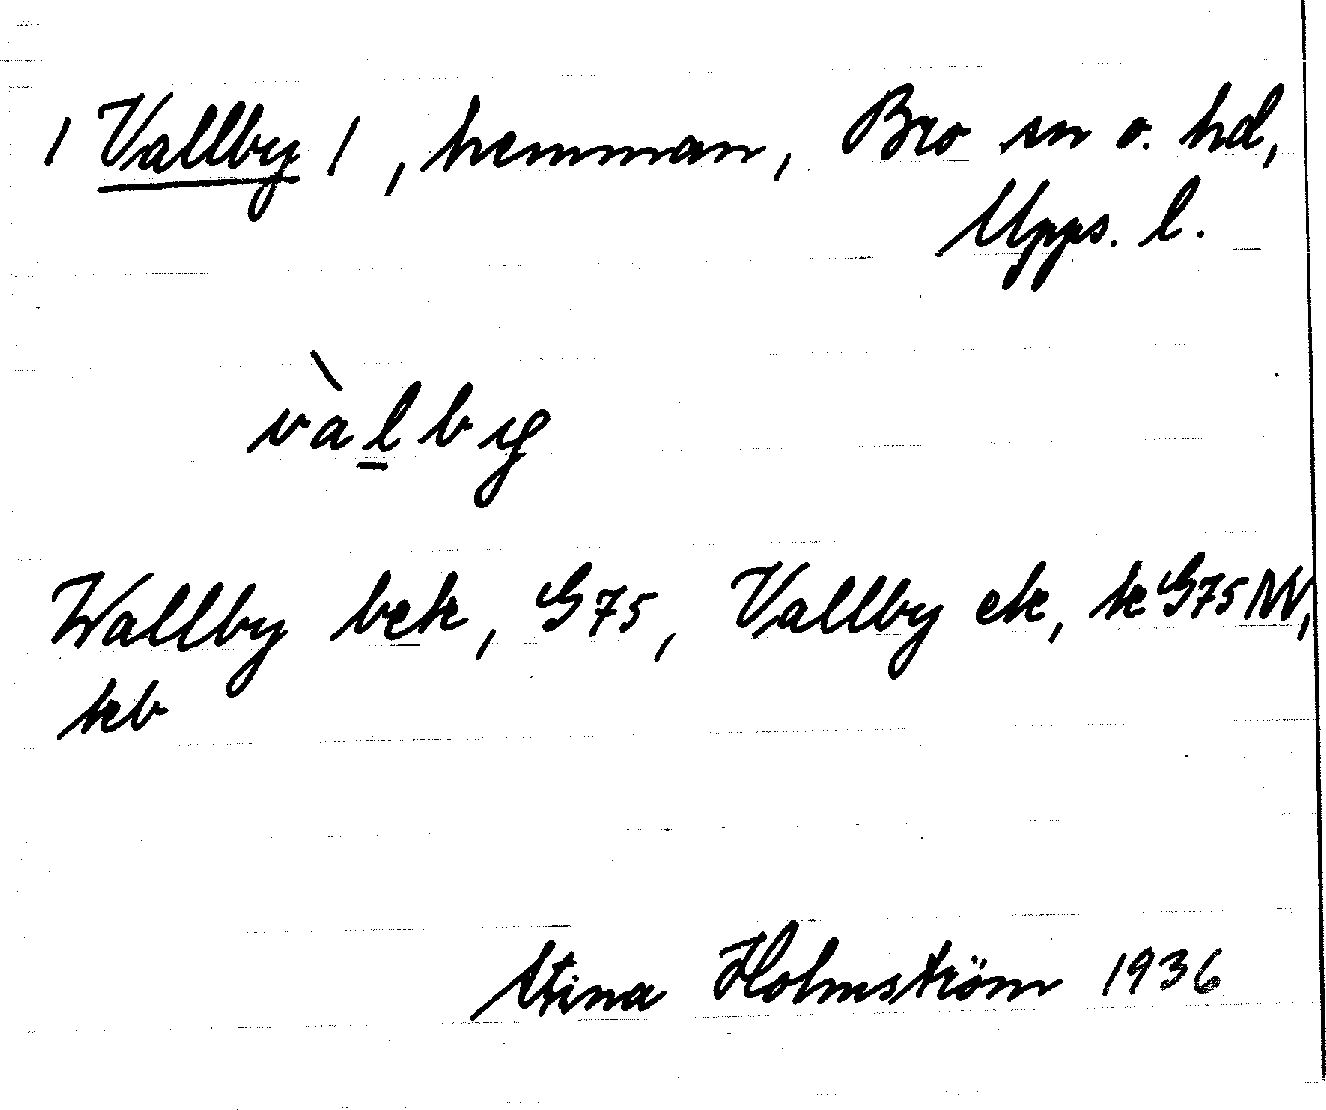 / Vallby /, hemman, Bro sn o. hd,
Upps. l.
vàl̲by
Wallby bek, G75, Vallby ek, k G75 NV,
kb
Stina Holmström 1936